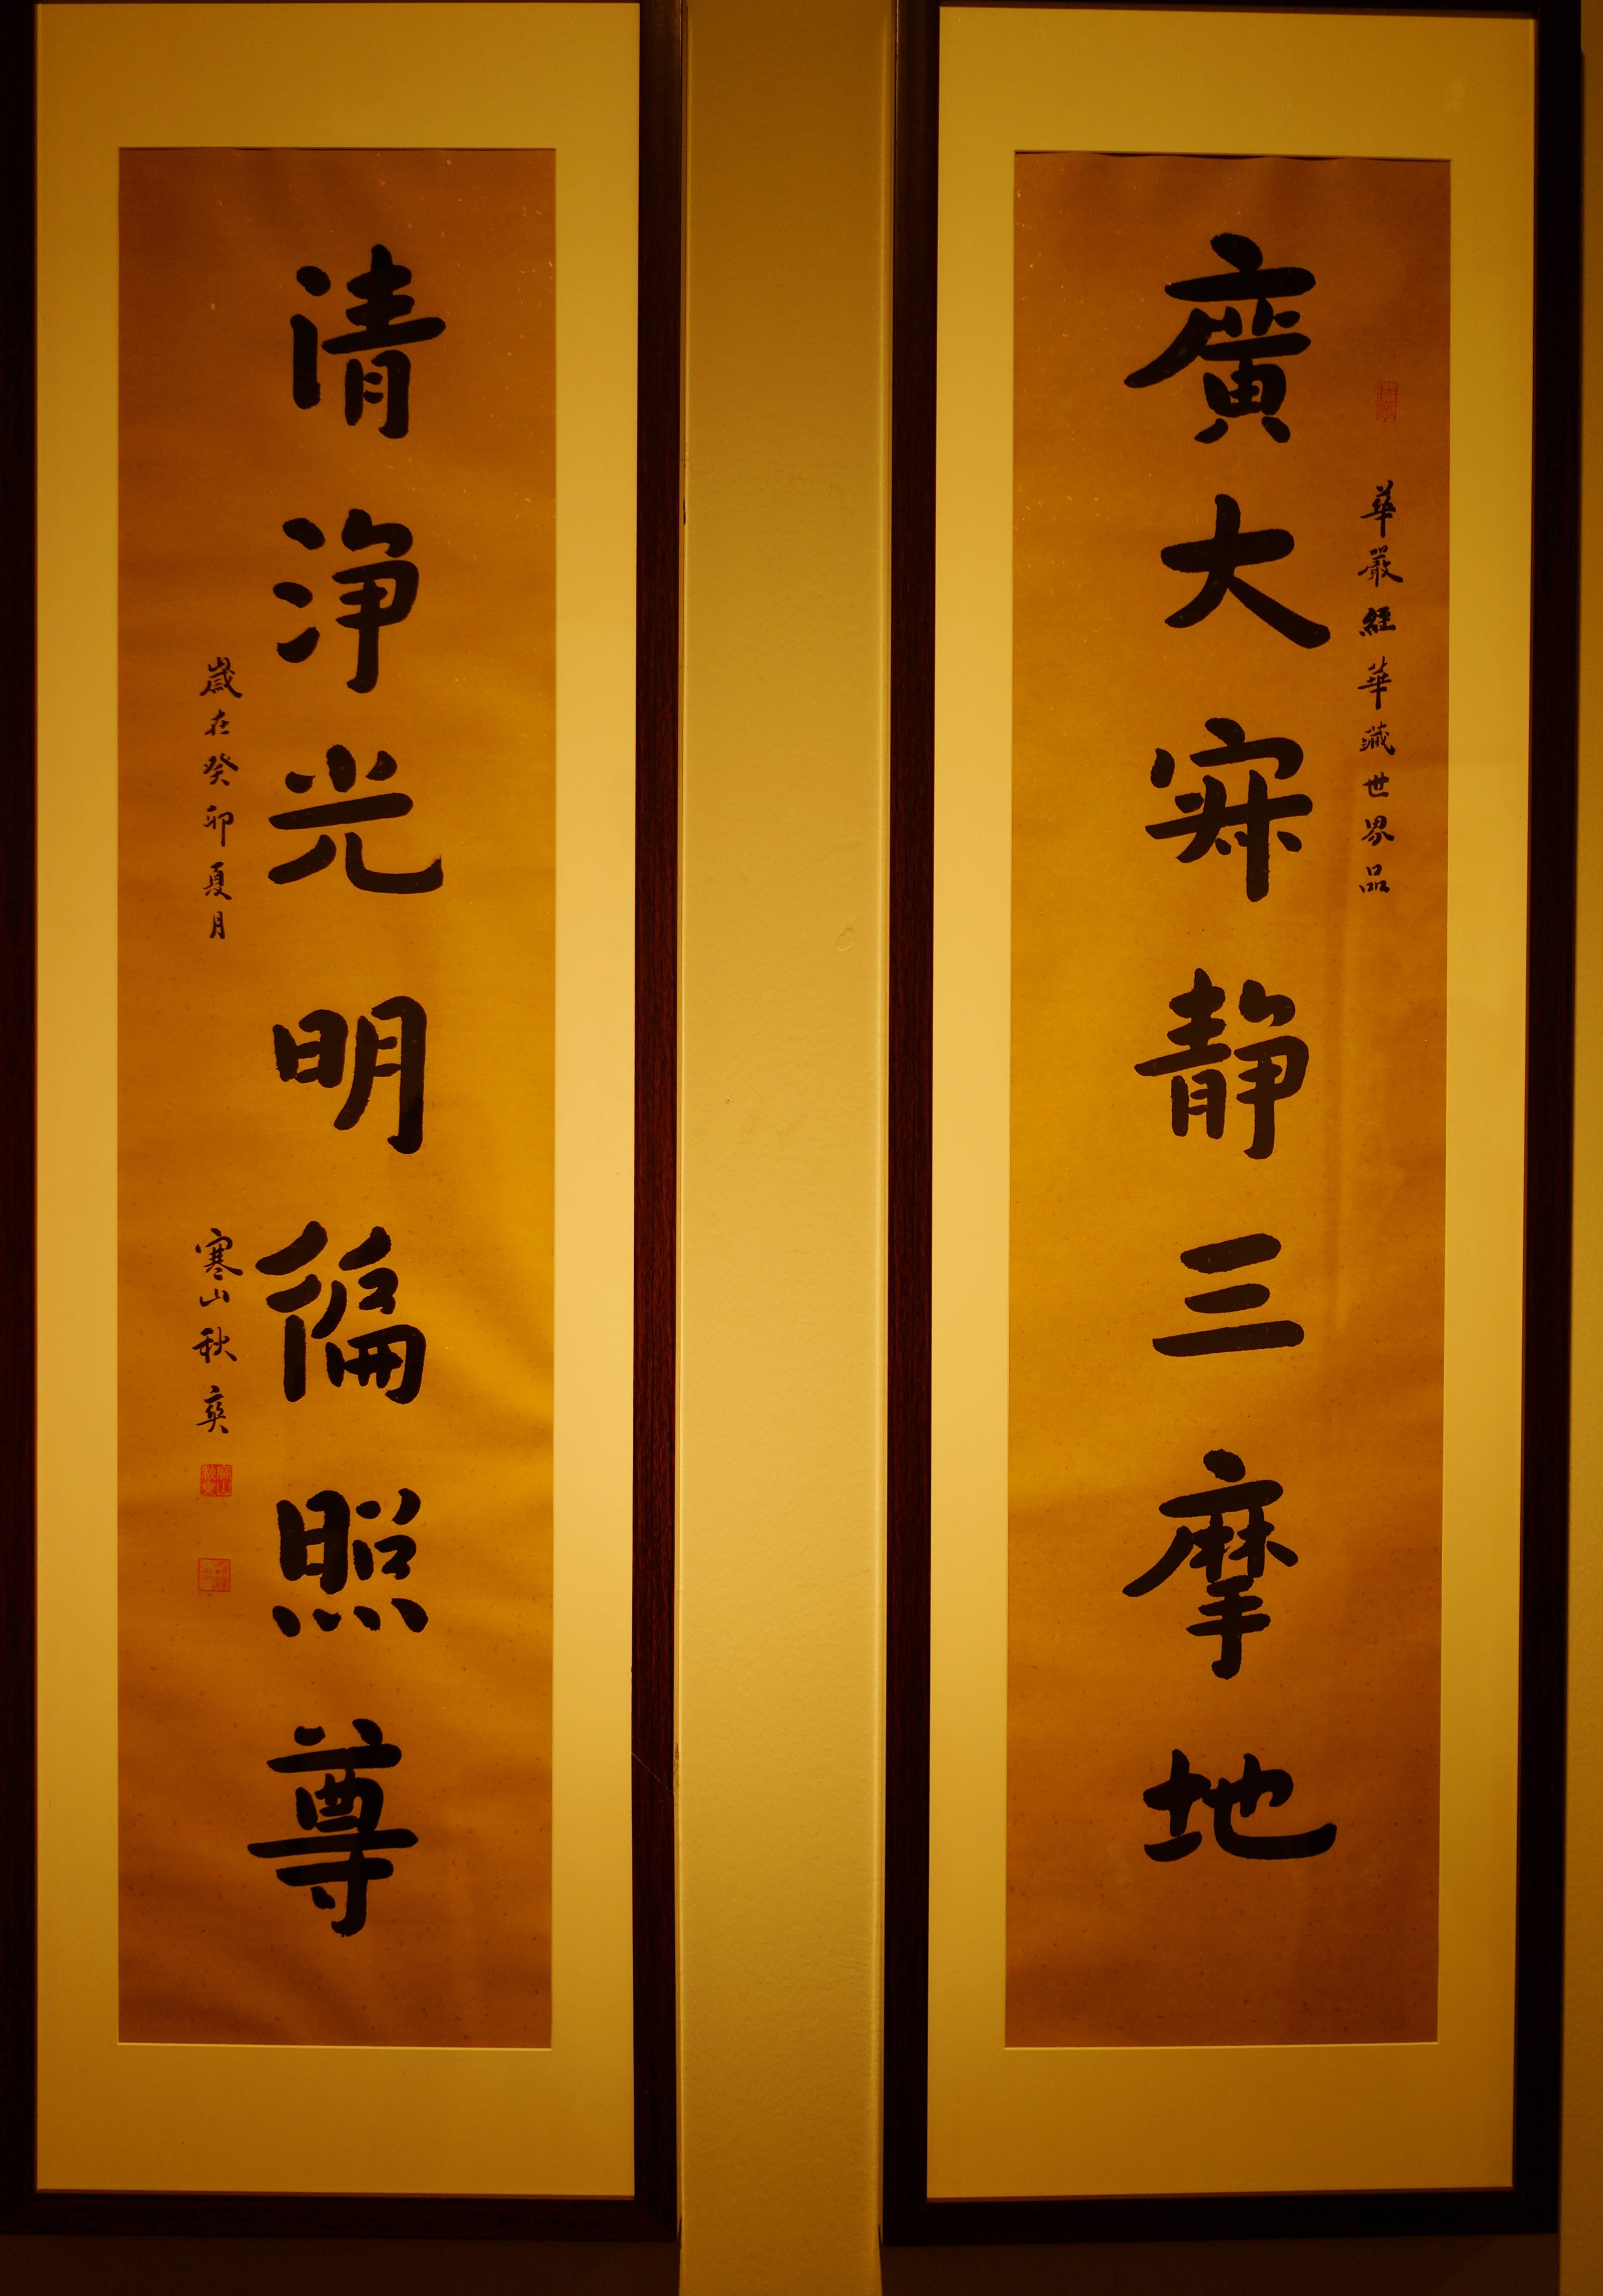 華嚴經華藏世界品
廣大寂靜三摩地
清淨光明徧照尊
歲在癸卯夏月
寒山秋爽